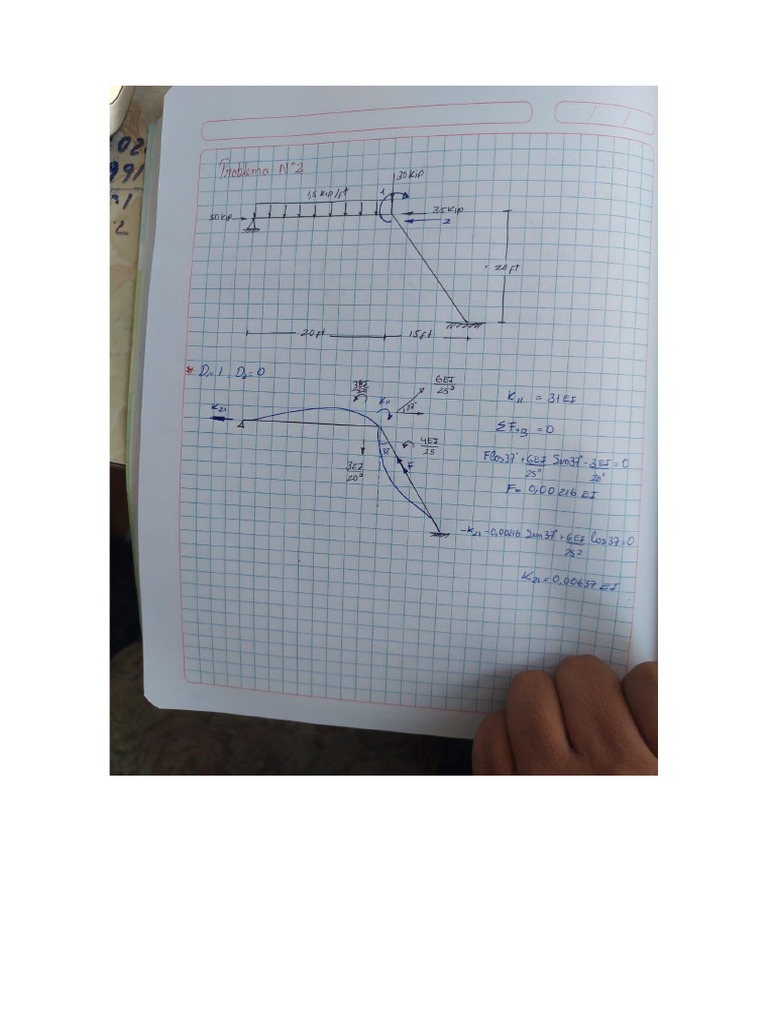 Problema N°2
30 Kip
1,5 Kip/ft
1
50 Kip
35 Kip
2
20 ft
20 ft
15 ft
* D₁=1, D₂=0
3EI/20
K₁₁
6EI/25²
37°
K₂₁
4EI/25
37
F
3EI/20²
K₁₁ = 31EI
ΣF_B = 0
F Cos37° + 6EI/25² Sen37° - 3EI/20² = 0
F = 0,00216 EI
-K₂₁ - 0,00216 Sen37° + 6EI/25² Cos37 = 0
K₂₁ = 0,00637 EI